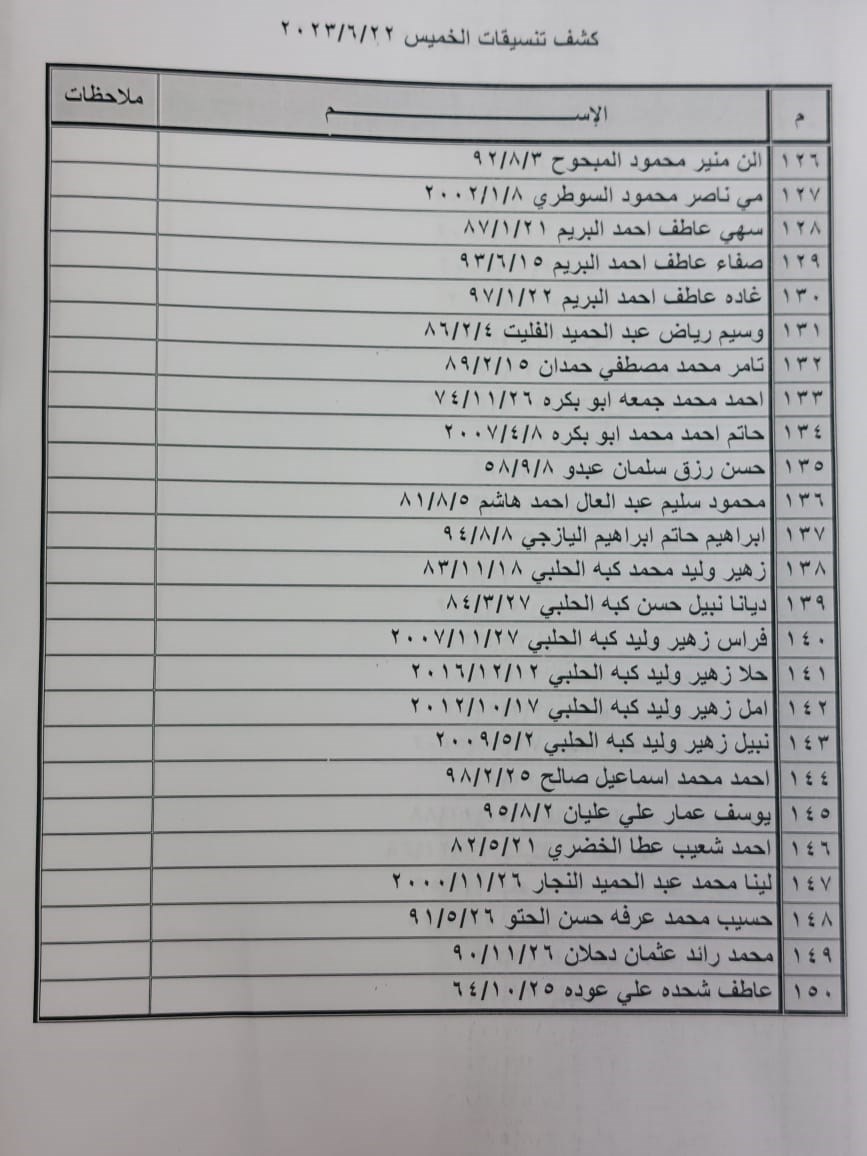 كشف تنسيقات الخميس ٢٠٢٣/٦/٢٢
م الإســـــــم ملاحظات
١٢٦ الن منير محمود المبحوح ٩٢/٨/٣
١٢٧ مي ناصر محمود السوطري ٢٠٠٢/١/٨
١٢٨ سهي عاطف احمد البريم ٨٧/١/٢١
١٢٩ صفاء عاطف احمد البريم ٩٣/٦/١٥
١٣٠ غاده عاطف احمد البريم ٩٧/١/٢٢
١٣١ وسيم رياض عبد الحميد الفليت ٨٦/٢/٤
١٣٢ تامر محمد مصطفي حمدان ٨٩/٢/١٥
١٣٣ احمد محمد جمعه ابو بكره ٧٤/١١/٢٦
١٣٤ حاتم احمد محمد ابو بكره ٢٠٠٧/٤/٨
١٣٥ حسن رزق سلمان عبدو ٥٨/٩/٨
١٣٦ محمود سليم عبد العال احمد هاشم ٨١/٨/٥
١٣٧ ابراهيم حاتم ابراهيم اليازجي ٩٤/٨/٨
١٣٨ زهير وليد محمد كبه الحلبي ٨٣/١١/١٨
١٣٩ ديانا نبيل حسن كبه الحلبي ٨٤/٣/٢٧
١٤٠ فراس زهير وليد كبه الحلبي ٢٠٠٧/١١/٢٧
١٤١ حلا زهير وليد كبه الحلبي ٢٠١٦/١٢/١٢
١٤٢ امل زهير وليد كبه الحلبي ٢٠١٢/١٠/١٧
١٤٣ نبيل زهير وليد كبه الحلبي ٢٠٠٩/٥/٢
١٤٤ احمد محمد اسماعيل صالح ٩٨/٢/٢٥
١٤٥ يوسف عمار علي عليان ٩٥/٨/٢
١٤٦ احمد شعيب عطا الخضري ٨٢/٥/٢١
١٤٧ لينا محمد عبد الحميد النجار ٢٠٠٠/١١/٢٦
١٤٨ حسيب محمد عرفه حسن الحتو ٩١/٥/٢٦
١٤٩ محمد رائد عثمان دحلان ٩٠/١١/٢٦
١٥٠ عاطف شحده علي عوده ٦٤/١٠/٢٥